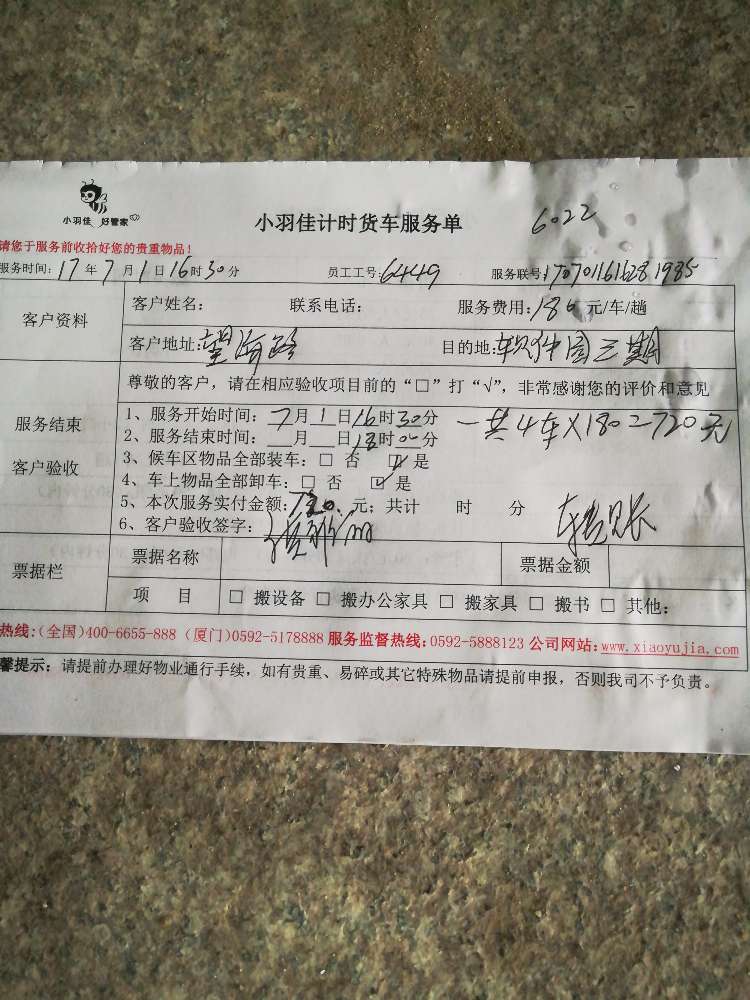 小羽佳 好管家
小羽佳计时货车服务单 6022
请您于服务前收拾好您的贵重物品!
服务时间:17年7月1日16时30分 员工工号:6449 服务联号:1707011616281985
客户资料
客户姓名: 联系电话: 服务费用:180元/车/趟
客户地址:望海路 目的地:软件园三期
尊敬的客户，请在相应验收项目前的“□”打“√”，非常感谢您的评价和意见
服务结束
客户验收
1、服务开始时间:7月1日16时30分 一共4车X180=720元
2、服务结束时间: 月 日18时00分
3、候车区物品全部装车:□ 否 ☑ 是
4、车上物品全部卸车:□ 否 ☑ 是
5、本次服务实付金额:720.元;共计 时 分
6、客户验收签字:
票据栏
票据名称 票据金额
项 目 □ 搬设备 □ 搬办公家具 □ 搬家具 □ 搬书 □ 其他:
热线:(全国)400-6655-888 (厦门)0592-5178888 服务监督热线:0592-5888123 公司网站:www.xiaoyujia.com
馨提示:请提前办理好物业通行手续，如有贵重、易碎或其它特殊物品请提前申报，否则我司不予负责。